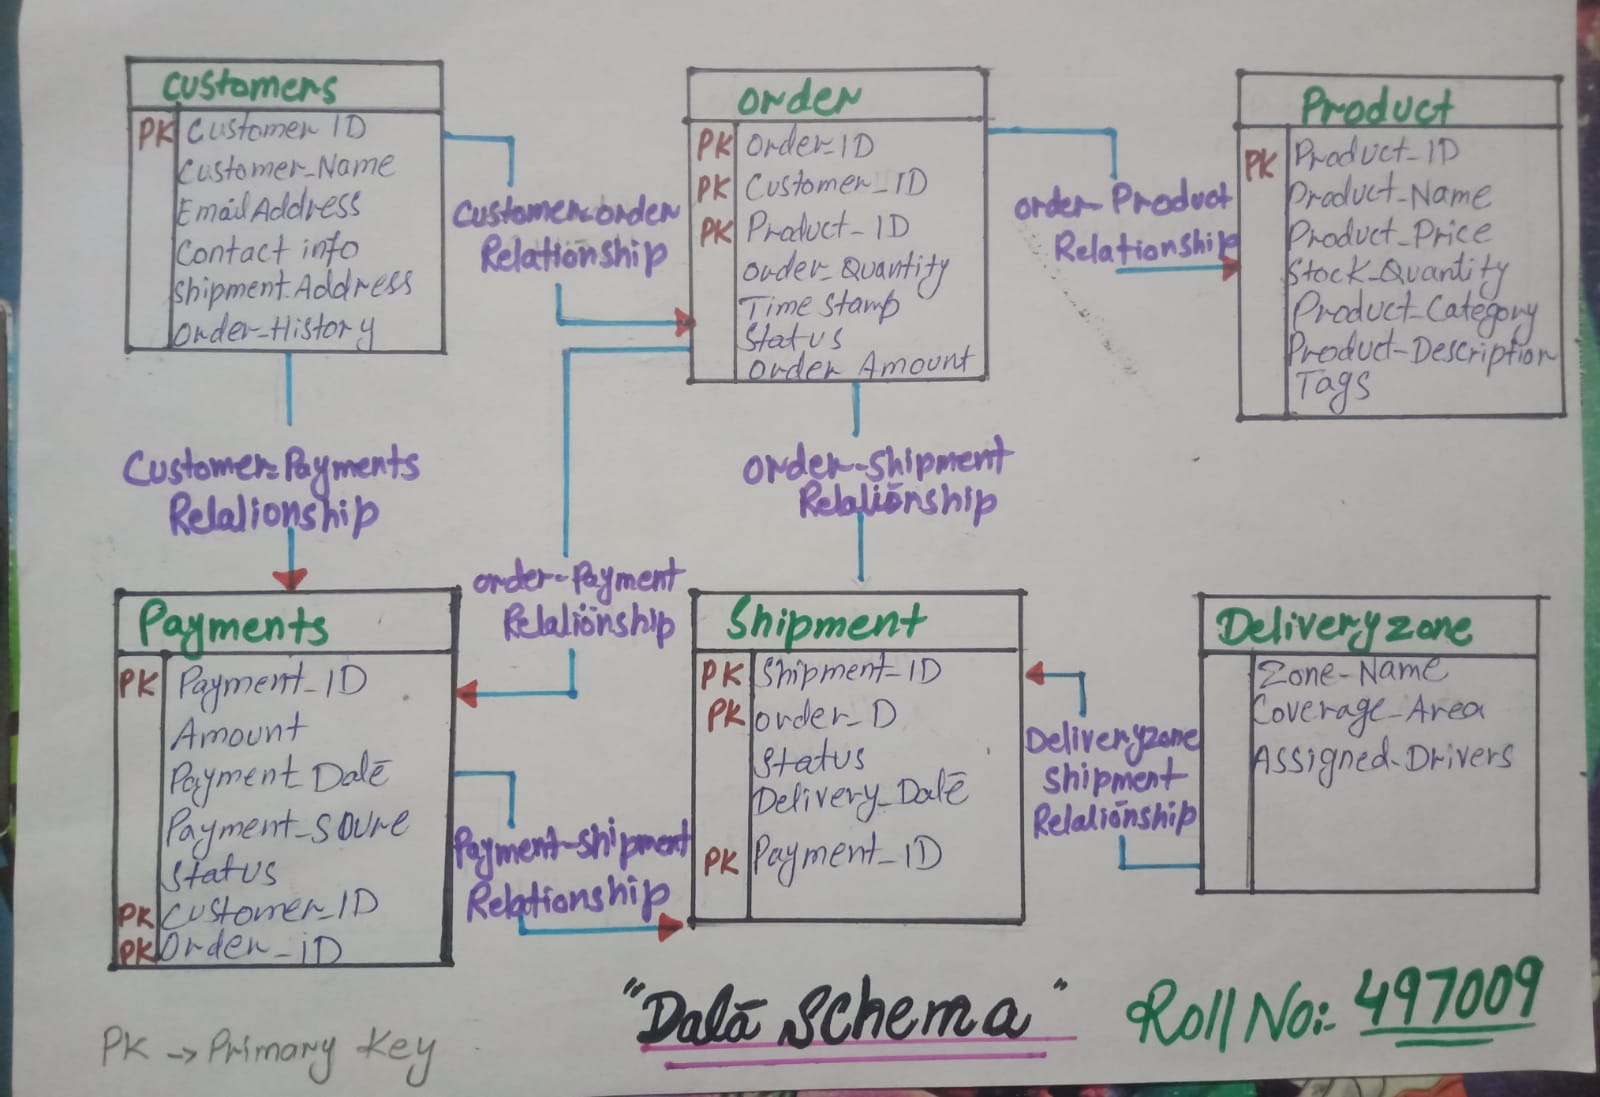 Customers
PK Customer ID
Customer_Name
Email Address
Contact info
Shipment Address
Order_History
Customer-order
Relationship
Order
PK Order_ID
PK Customer_ID
PK Product_ID
Order_Quantity
Time Stamp
Status
Order Amount
order-Product
Relationship
Product
PK Product_ID
Product_Name
Product_Price
Stock_Quantity
Product_Category
Product-Description
Tags
Customer-Payments
Relationship
order-Payment
Relationship
order-shipment
Relationship
Payments
PK Payment_ID
Amount
Payment Date
Payment_Soure
Status
PK Customer_ID
PK Order_ID
Payment-shipment
Relationship
Shipment
PK Shipment_ID
PK order_D
Status
Delivery_Date
PK Payment_ID
Deliveryzone
Shipment
Relationship
Deliveryzone
Zone-Name
Coverage_Area
Assigned-Drivers
PK → Primary Key
"Data Schema"
Roll No:- 497009